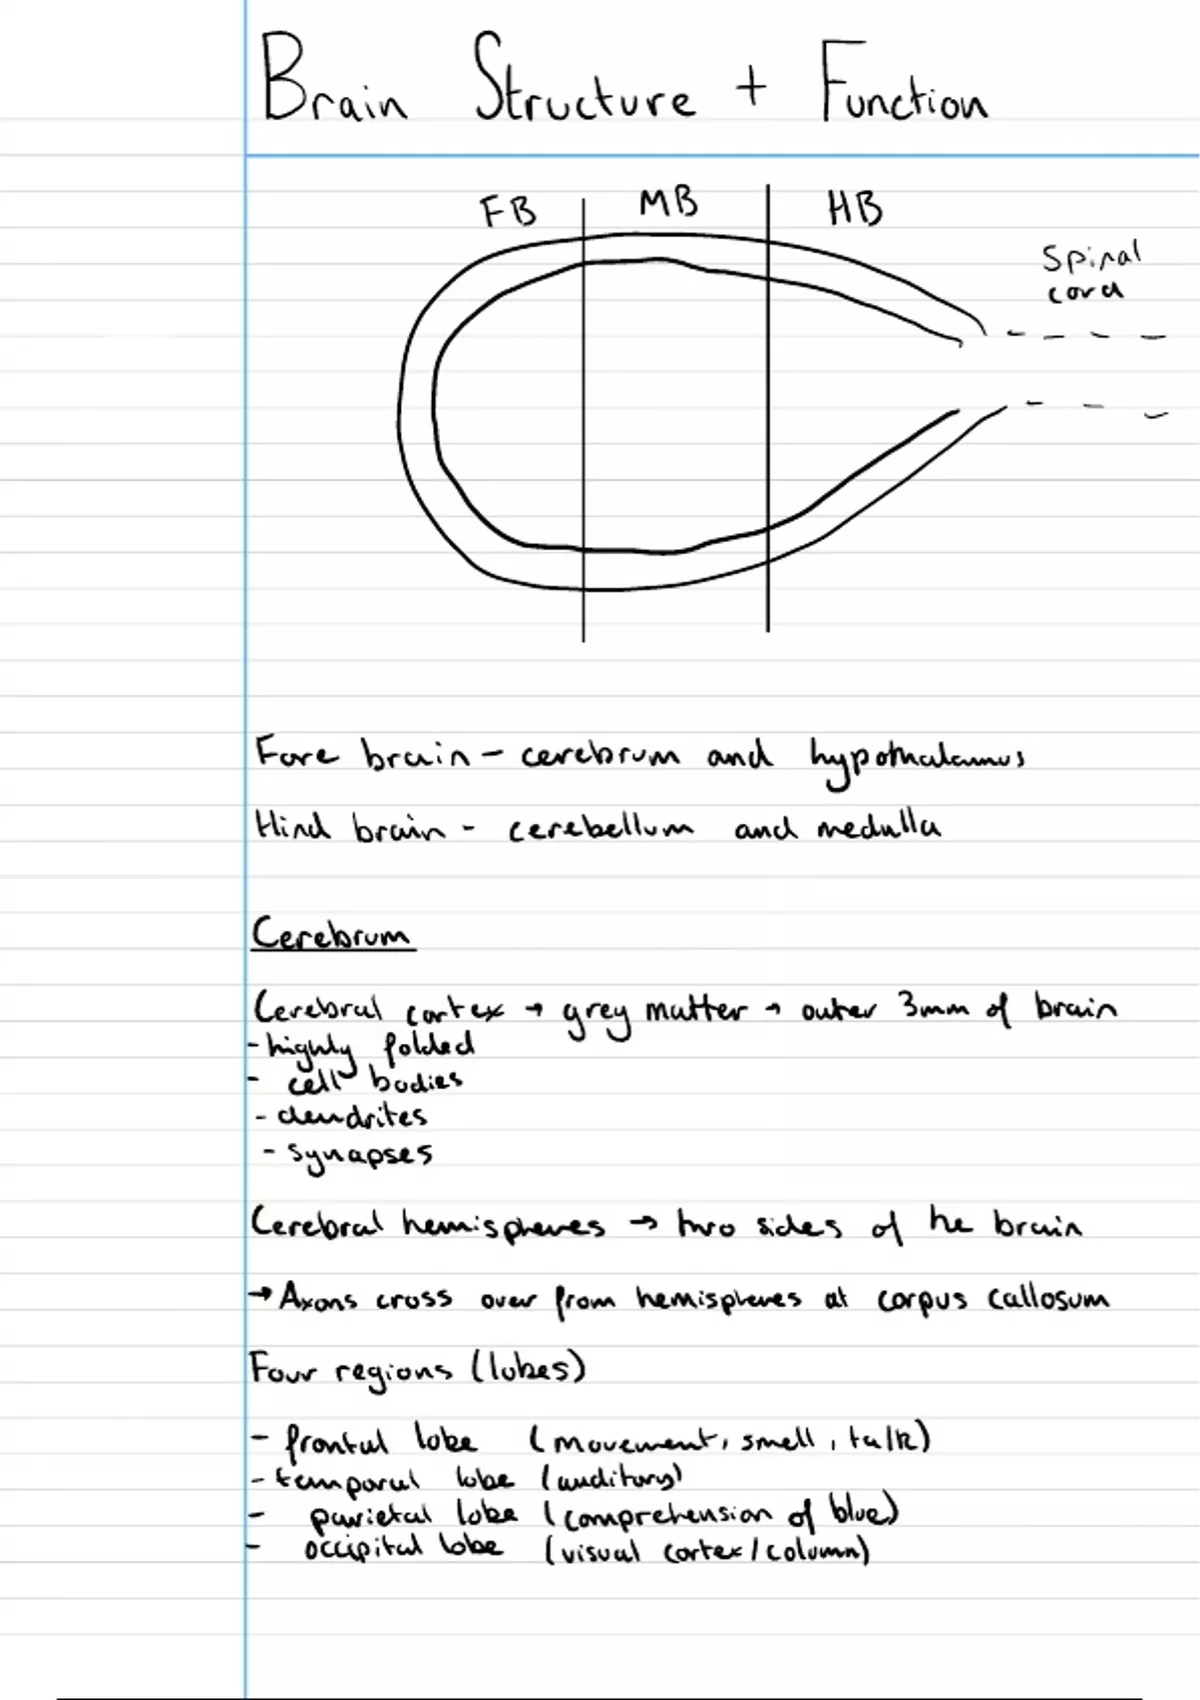 Brain Structure + Function
FB MB HB
Spinal
cord
Fore brain - cerebrum and hypothalamus
Hind brain - cerebellum and medulla
Cerebrum
Cerebral cortex → grey matter → outer 3mm of brain
- highly folded
- cell bodies
- dendrites
- synapses
Cerebral hemispheres → two sides of the brain
→ Axons cross over from hemispheres at corpus callosum
Four regions (lobes)
- frontal lobe (movement, smell, talk)
- temporal lobe (auditory)
- parietal lobe (comprehension of blue)
- occipital lobe (visual cortex/column)